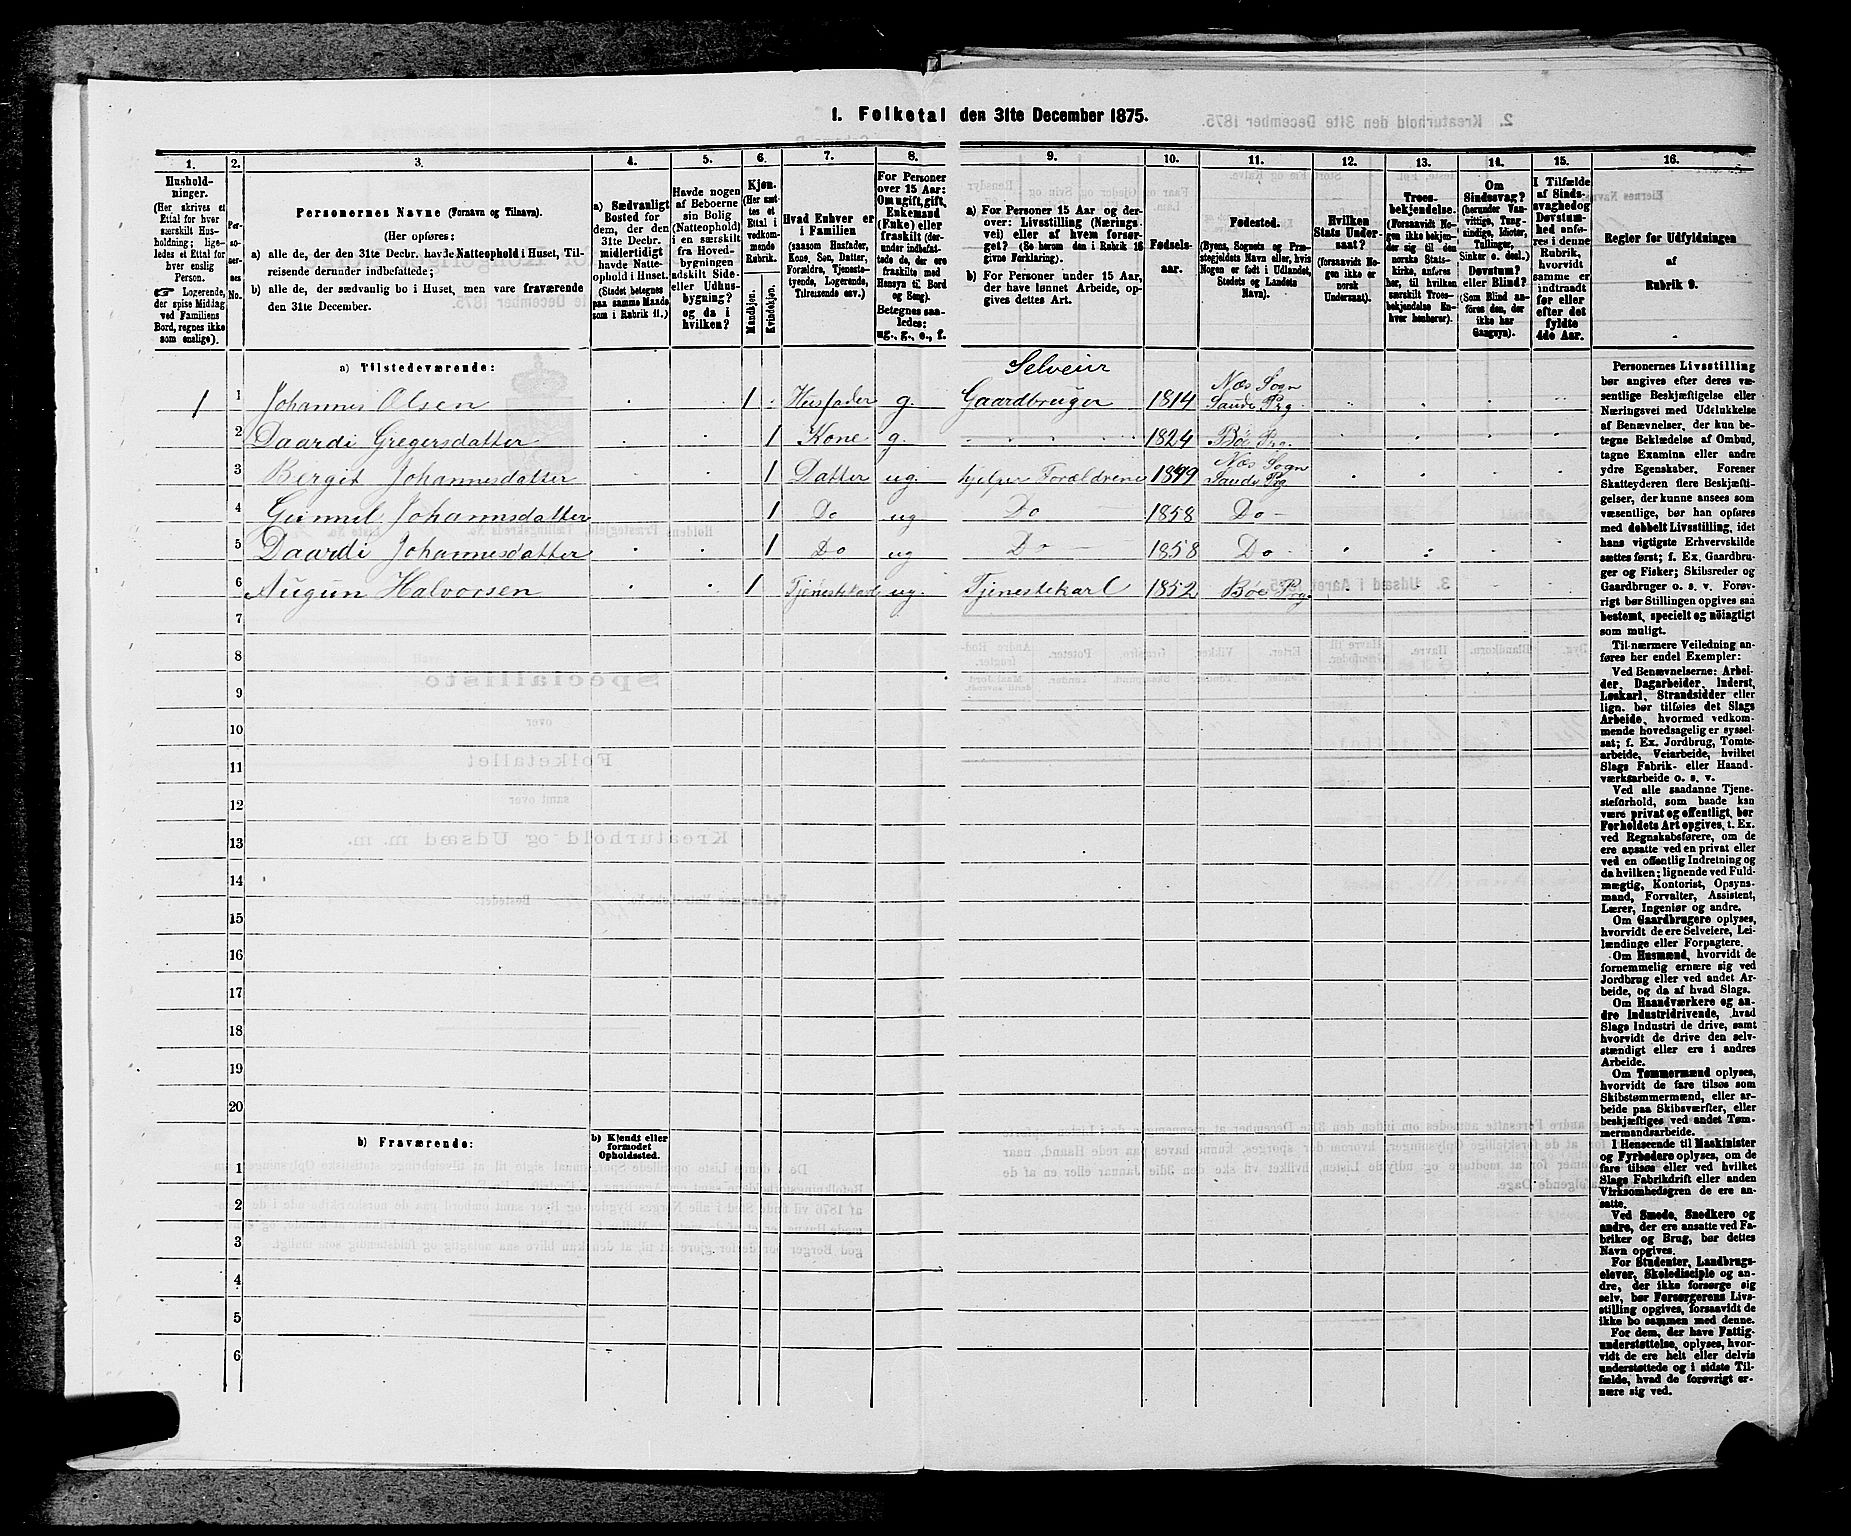 1. Folketal den 31te December 1875.
1. 2. 3. 4. 5. 6. 7. 8. 9. 10. 11. 12. 13. 14. 15. 16.
Hushold-
ninger.
(Her skrives et
Ettal for hver
særskilt Hus-
holdning; lige-
ledes et Ettal for
hver enslig
Person.
☞ Logerende,
der spise Middag
ved Familiens
Bord, regnes ikke
som enslige).
Per-
so-
ner-
nes
No.
Personernes Navne (Fornavn og Tilnavn).
(Her opføres:
a) alle de, der den 31te Decbr. havde Natteophold i Huset, Til-
reisende derunder indbefattede;
b) alle de, der sædvanlig bo i Huset, men vare fraværende
den 31te December.
a) Sædvanligt
Bosted for
dem, der den
31te Decbr.
midlertidigt
havde Natte-
ophold i Huset.
(Stedet betegnes
paa samme Maade
som i Rubrik 11.)
Havde nogen
af Beboerne
sin Bolig
(Natteophold)
i en særskilt
fra Hoved-
bygningen
adskilt Side-
eller Udhus-
bygning?
og da i
hvilken?
Kjøn.
(Her sæt-
tes et
Ettal i
vedkom-
mende
Rubrik.
Mandkjøn.
Kvindekjøn.
Hvad Enhver er
i Familien
(saasom Husfader,
Kone, Søn, Datter,
Forældre, Tjeneste-
tyende, Logerende,
Tilreisende osv.)
For Personer
over 15 Aar:
Om ugift, gift,
Enkemand
(Enke) eller
fraskilt (der-
under indbefat-
tede de, der ere
fraskilte med
Hensyn til Bord
og Seng).
Betegnes saa-
ledes:
ug., g., e., f.
a) For Personer 15 Aar og der-
over: Livsstilling (Nærings-
vei) eller af hvem forsør-
get? (Se herom den i Rubrik 16
givne Forklaring).
b) For Personer under 15 Aar,
der have lønnet Arbeide, op-
gives dettes Art.
Fødsels-
aar.
Fødested.
(Byens, Sognets og Præ-
stegjeldets Navn eller, hvis
Nogen er født i Udlandet,
Stedets og Landets
Navn).
Hvilken
Stats Under-
saat?
(forsaavidt No-
gen ikke er
norsk
Undersaat).
Troes-
bekjendelse.
(Forsaavidt No-
gen ikke bekjen-
der sig til den
norske Stats-
kirke, anføres
her, til hvilket
særskilt Troes-
bekjendelse En-
hver henhører).
Om
Sindssvag?
(herunder Van-
vittige, Tung-
sindige, Idioter,
Tullinger,
Sinker o. desl.)
Døvstum?
eller Blind?
(Som Blind an-
føres den, der
ikke har
Gangsyn).
I Tilfælde
af Sinds-
svaghed og
Døvstum-
hed anfø-
res i denne
Rubrik,
hvorvidt
samme er
indtraadt
før eller
efter det
fyldte
4de Aar.
Regler for Udfyldningen
af
Rubrik 9.
a) Tilstedeværende:
Selveier
1 1 Johannes Olsen 1 Husfader g. Gaardbruger 1814 Næs Sogn Saude Prg
2 Daardi Gregersdatter 1 Kone g. 1824 Bøe Prg.
3 Bergit Johannesdatter 1 Datter ug. hjelper Forældrene 1849 Næs Sogn Saude Prg
4 Gunnil Johannsdatter 1 Do ug Do 1858 Do
5 Daardi Johannesdatter 1 Do ug Do 1858 Do
6 Augun Halvorsen 1 ug. Tjenestekarl 1852 Bøe Prg.
7
8
9
10
11
12
13
14
15
16
17
18
19
20
b) Fraværende:
b) Kjendt eller
formodet
Opholdssted.
1
2
3
4
5
6
Personernes Livsstilling
bør angives efter deres væ-
sentlige Beskjæftigelse eller
Næringsvei med Udelukkelse
af Benævnelser, der kun be-
tegne Beklædelse af Ombud,
tagne Examina eller andre
ydre Egenskaber. Forener
Skatteyderen flere Beskjæfti-
gelser, der kunne ansees som
væsentlige, bør han opføres
med dobbelt Livsstilling, idet
hans vigtigste Erhvervskilde
sættes først; f. Ex. Gaardbru-
ger og Fisker; Skibsreder og
Gaardbruger o. s. v. Forøv-
rigt bør Stillingen opgives saa
bestemt, specielt og nøiagtigt
som muligt.
Til nærmere Veiledning an-
føres her endel Exempler:
Ved Benævnelserne: Arbei-
der, Dagarbeider, Inderst,
Løskarl, Strandsidder eller
lign. bør tilføies det Slags
Arbeide, hvormed vedkom-
mende hovedsagelig er syssel-
sat; f. Ex. Jordbrug, Tomte-
arbeide, Veiarbeide, hvilket
Slags Fabrik- eller Haand-
værksarbeide o. s. v.
Ved alle saadanne Tjene-
steforhold, som baade kan
være privat og offentligt, bør
Forholdets Art opgives, t. Ex.
ved Regnskabsførere, om de
ere ansatte ved en privat eller
ved en offentlig Indretning og
da hvilken; lignende ved Fuld-
mægtig, Kontorist, Opsyns-
mand, Forvalter, Assistent,
Lærer, Ingeniør og andre.
Om Gaardbrugere oplyses,
hvorvidt de ere Selveiere, Lei-
lændinge eller Forpagtere.
Om Husmænd, hvorvidt de
fornemmelig ernære sig ved
Jordbrug eller ved andet Ar-
beide, og da af hvad Slags.
Om Haandværkere og an-
dre Industridrivende, hvad
Slags Industri de drive, samt
hvorvidt de drive den selv-
stændigt eller ere i andres
Arbeide.
Om Tømmermænd oplyses,
hvorvidt de fare tilsøs som
Skibstømmermænd, eller ar-
beide paa Skibsværfter, eller
beskjæftiges ved andet Tøm-
mermandsarbeide.
I Henseende til Maskinister
og Fyrbødere oplyses, om de
fare tilsøs eller ved hvilket
Slags Fabrikdrift eller anden
Virksomhedsgren de ere an-
satte.
Ved Smede, Snedkere og
andre, der ere ansatte ved Fa-
briker og Brug, bør dettes
Navn opgives.
For Studenter, Landbrugs-
elever, Skoledisciple og an-
dre, der ikke forsørge sig
selv, bør Forsørgerens Livs-
stilling opgives, forsaavidt de
ikke bo sammen med denne.
For dem, der have Fattig-
understøttelse, oplyses, hvor-
vidt de ere helt eller delvis
understøttede og i sidste Til-
fælde, hvad de forøvrigt er-
nære sig ved.